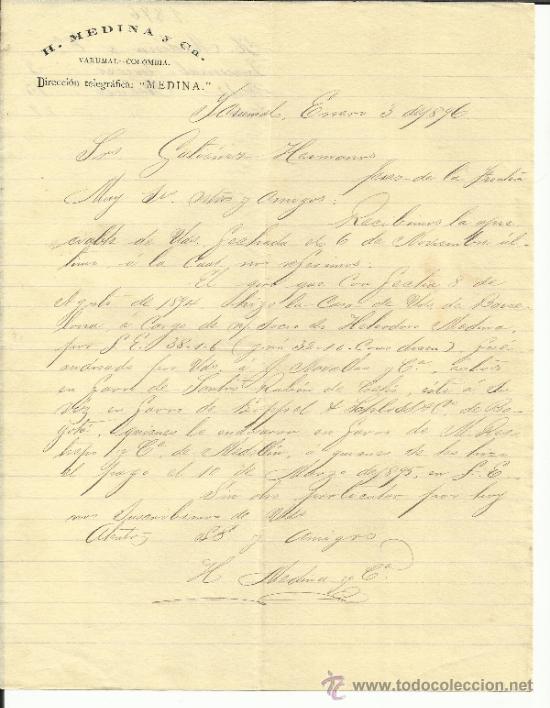 H. MEDINA y Ca.
YARUMAL-COLOMBIA.
Dirección telegráfica: "MEDINA."
Yarumal, Enero 3 de 1896
Srs Gutiérrez Hermanos
Jerez de la Frontra
Muy Sr. ntros y Amigos:
Recibimos la apre
ciable de Vds. fechada el 6 de Noviembre úl-
timo á la Cual nos referimos.
El giro que Con fecha 8 de
Agosto de 1894 hizo la Casa de Vds. de Barce-
lona, á Cargo de Socio Dn Heliodoro Medina,
por £ E. 38-1-6 (y nó 32-10- Como dicen), fué
endosado por Vds. á J. Morales y Ca.
en favor de éste á su
vez en favor de & de Bo-
gotá, quienes la endosaron en favor de M. Res-
trepo y Ca de Medellín, á quienes se les hizo
el pago el 10 de Marzo de 1895, en £ E.
Sin otro particular por hoy
nos suscribimos de Vds
Atentos SS. y Amigos
H. Medina y Ca
todocoleccion
www.todocoleccion.net